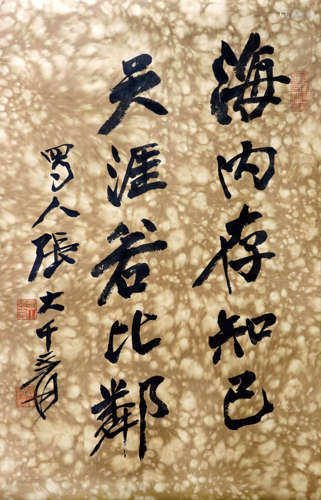 海内存知己
天涯若比鄰
蜀人張大千爰